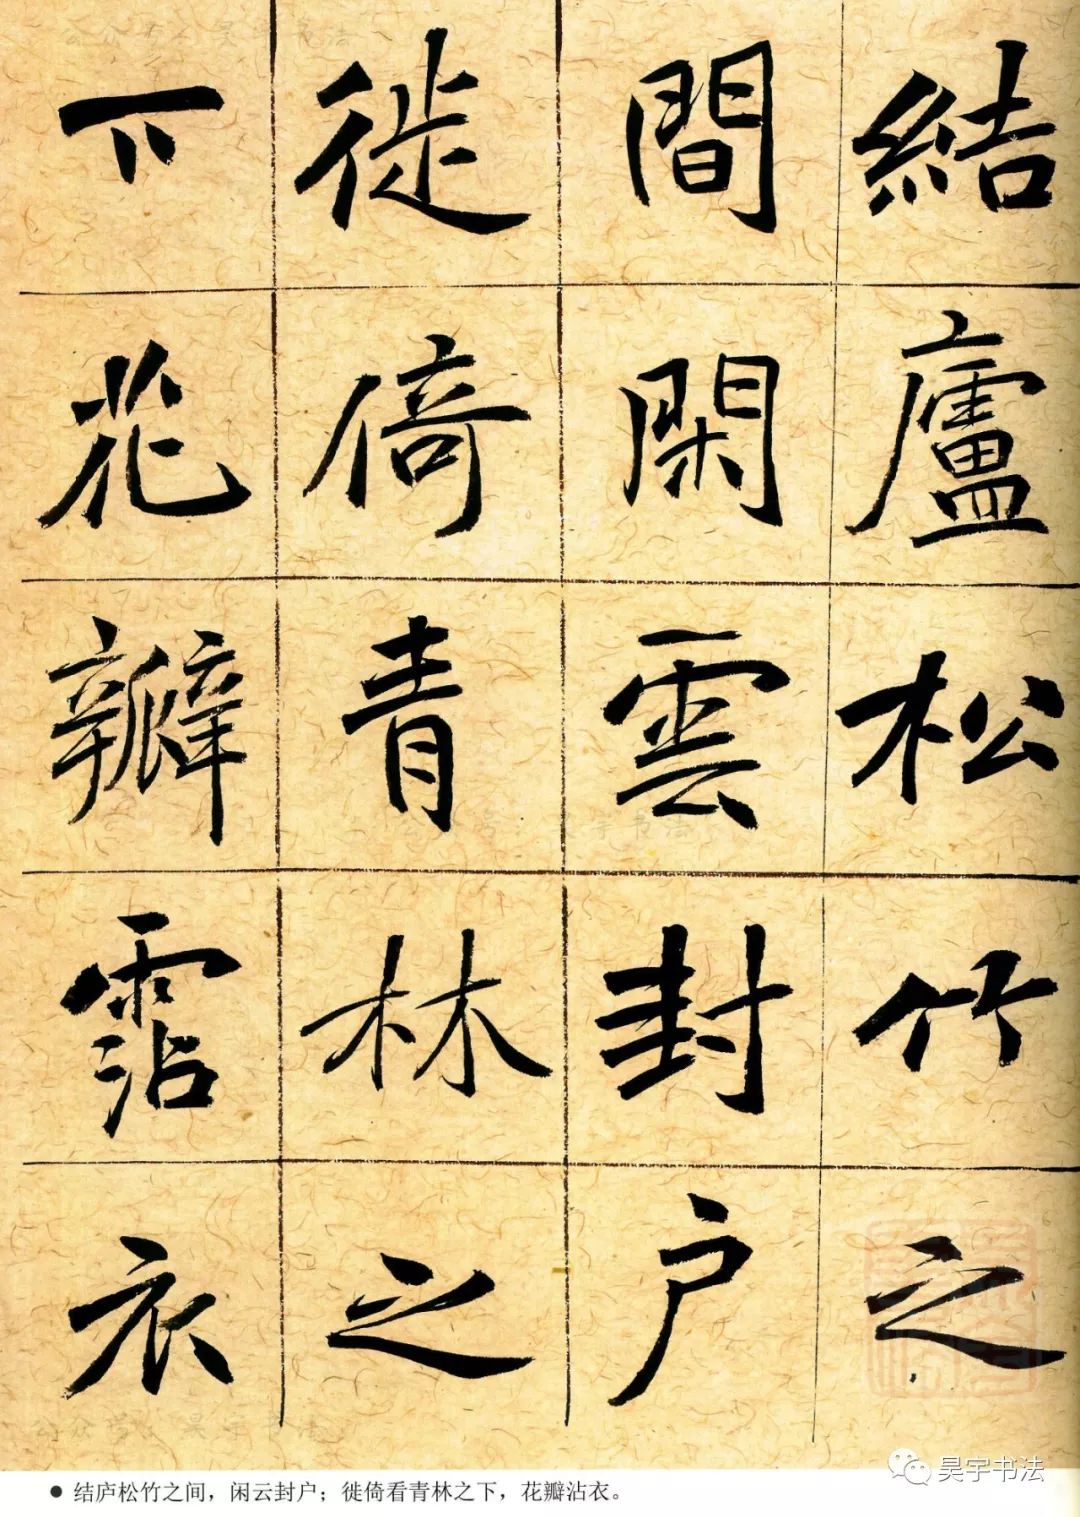 結廬松竹之
間閑雲封户
徙倚青林之
下花瓣霑衣
● 结庐松竹之间，闲云封户；徙倚看青林之下，花瓣沾衣。
昊宇书法